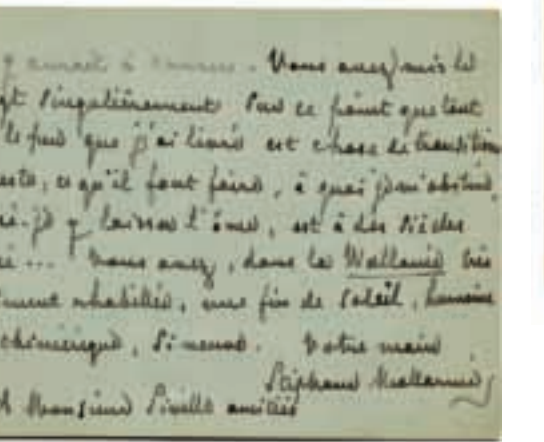 y aurait à            . Vous avez mis le
gt singulièrement sur ce point que tout
le peu que j'ai livré est chose de transition
, ce qu'il faut faire, à quoi je m'obstine,
-je y laisser l'âme, est à des siècles
... Vous avez, dans la Wallonie très
ment rhabillée, une fin de soleil, humaine
chimérique,            . Votre main
Stéphane Mallarmé
A Monsieur            amitiés